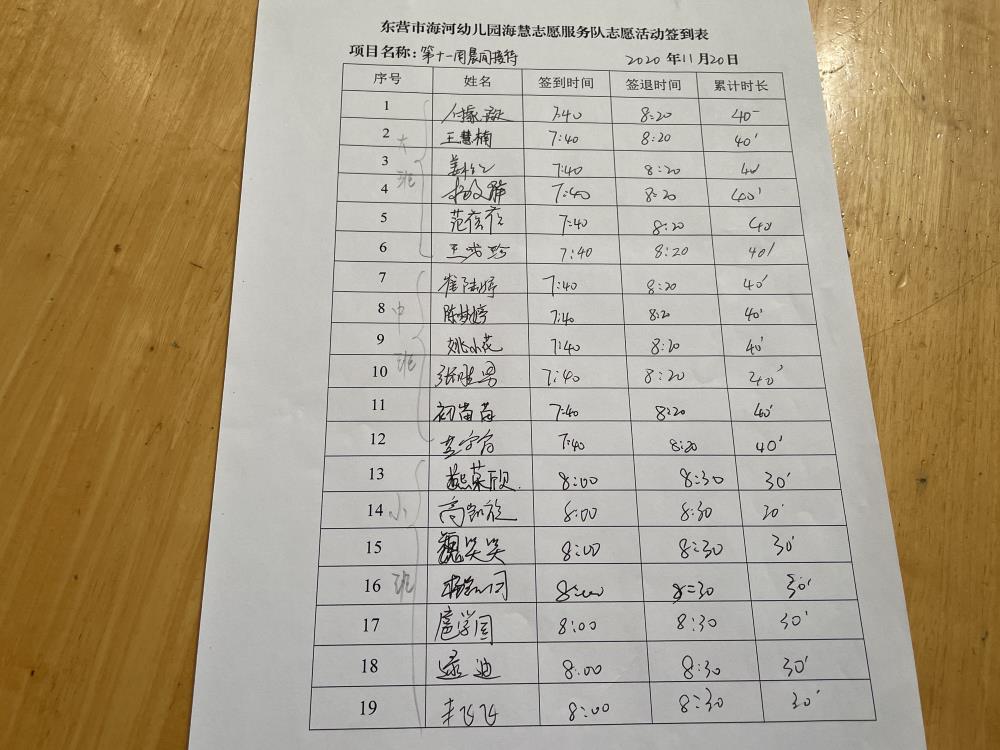 东营市海河幼儿园海慧志愿服务队志愿活动签到表
项目名称：第十一周晨间接待 2020年11月20日
序号 姓名 签到时间 签退时间 累计时长
1 7:40 8:20 40'
2 王慧楠 7:40 8:20 40'
3 7:40 8:20 40
4 7:40 8:20 40'
5 范蓓蓓 7:40 8:20 40
6 7:40 8:20 40'
7 7:40 8:20 40'
8 陈梦婷 7:40 8:20 40'
9 姚小花 7:40 8:20 40'
10 张晓男 7:40 8:20 40'
11 初苗苗 7:40 8:20 40'
12 7:40 8:20 40'
13 8:00 8:30 30'
14 高凯旋 8:00 8:30 30'
15 魏笑笑 8:00 8:30 30'
16 8:00 8:30 30'
17 扈学园 8:00 8:30 30'
18 8:00 8:30 30'
19 8:00 8:30 30'
大班
中班
小班